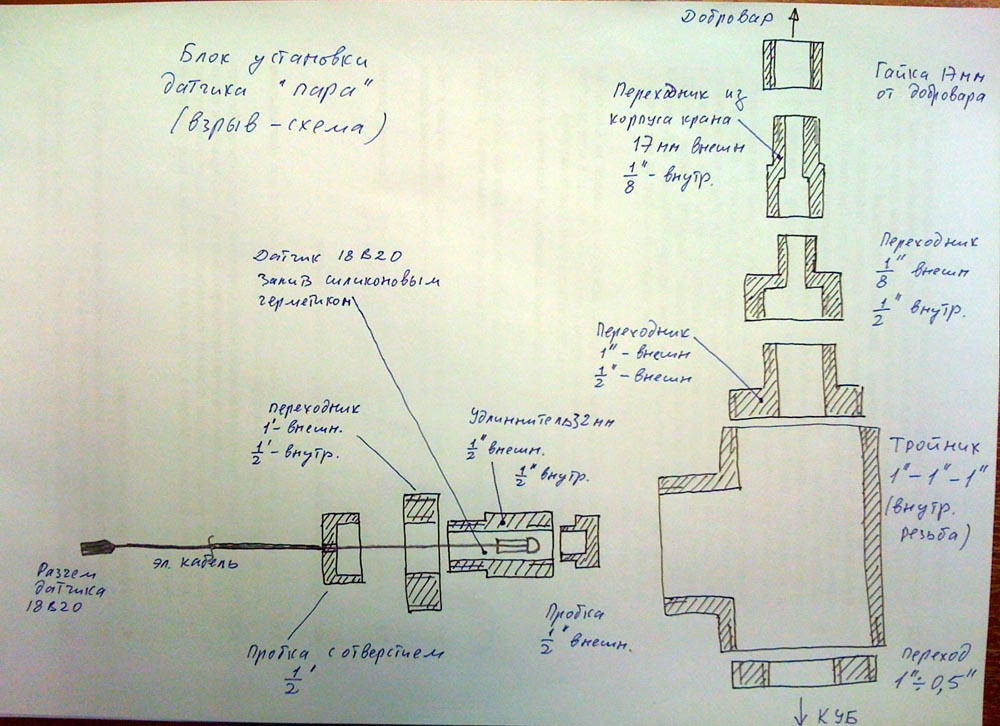 Добровар
Блок установки
датчика "пара"
(взрыв-схема)
Гайка 17мм
от добровара
Переходник из
корпуса крана
17 мм внешн
1/8" - внутр.
Датчик 18В20
Залит силиконовым
герметиком
Переходник
1/8" внешн
1/2" внутр.
Переходник
1" - внешн
1/2" - внешн
переходник
1' - внешн.
1/2' - внутр.
Удлиннитель 32мм
1/2" внешн.
1/2" внутр.
Тройник
1" - 1" - 1"
(внутр.
резьба)
эл. кабель
Разъем
датчика
18В20
Пробка с отверстием
1/2'
Пробка
1/2" внешн.
переход
1" ÷ 0,5"
КУБ